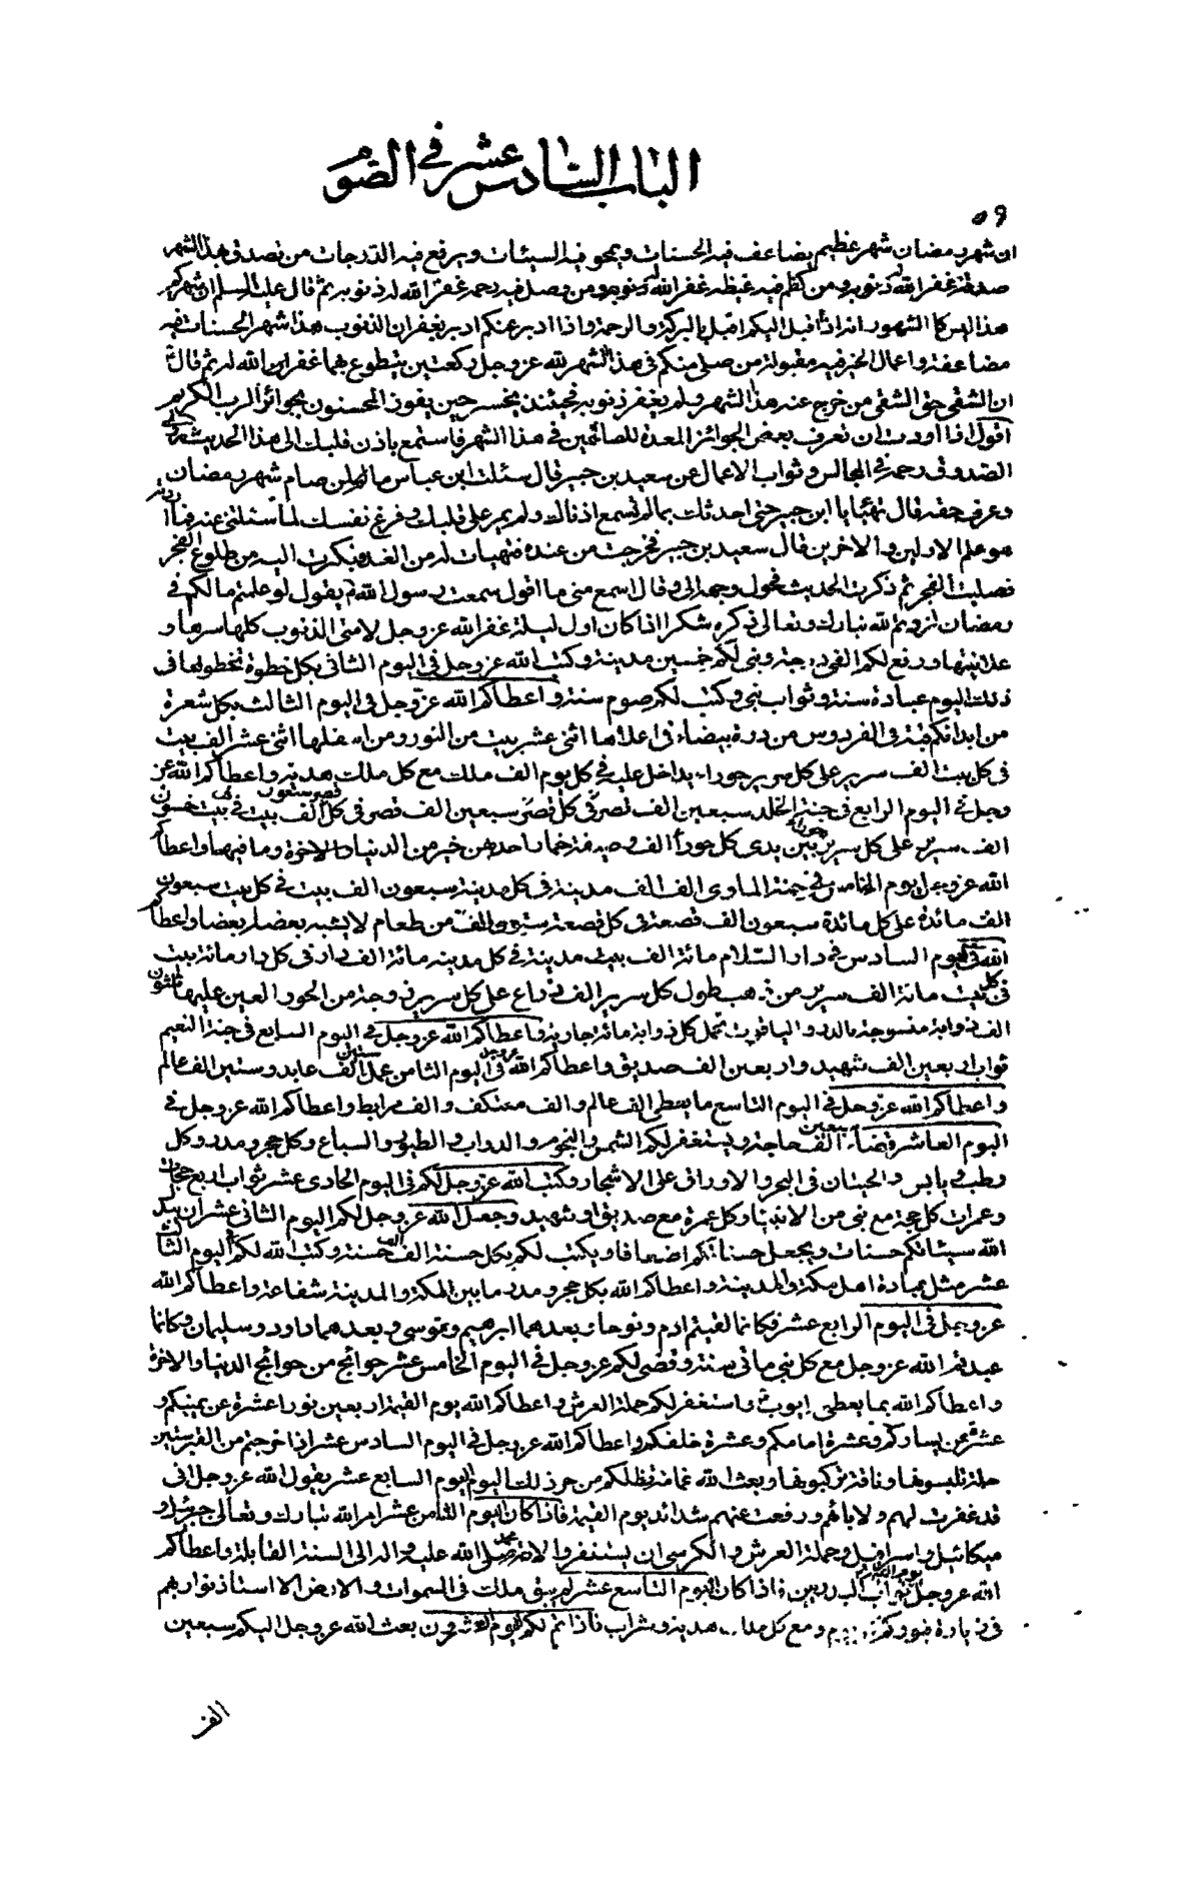 الباب السادس عشر في الصوم
٥٩
ان شهر رمضان شهر عظيم يضاعف فيه الحسنات ويمحو فيه السيئات ويرفع فيه الدرجات من تصدق في هذا الشهر
صدقة غفر الله له ذنوبه ومن كظم فيه غيظه غفر الله له ذنوبه ومن وصل فيه رحمه غفر الله له ذنوبه ثم قال عليه السلم ان شهركم
هذا ليس كالشهور انه اذا أقبل اليكم اقبل بالبركة والرحمة واذا ادبر عنكم ادبر بغفران الذنوب هذا شهر الحسنات فيه
مضاعفة واعمال الخير فيه مقبولة من صلى منكم في هذا الشهر لله عز وجل ركعتين يتطوع بهما غفر الله له ثم قال
ان الشقي حق الشقي من خرج عنه هذا الشهر ولم يغفر ذنوبه فحينئذ يخسر حين يفوز المحسنون بجوائز الرب الكريم
اقول اذا اردت ان تعرف بعض الجوائز المعدة للصائمين في هذا الشهر فاستمع باذن قلبك الى هذا الحديث
الصدوق رحمه في المجالس وثواب الاعمال عن سعيد بن جبير قال سئلت ابن عباس ما لمن صام شهر رمضان
وعرف حقه قال تهيأ يا ابن جبير حتى احدثك بما لم تسمع اذناك ولم يمر على قلبك وفرغ نفسك لما سئلتني عنه فما
هو علم الاولين والاخرين قال سعيد بن جبير فخرجت من عنده فتهيأت له من الغد فبكرت اليه من طلوع الفجر
فصليت الفجر ثم ذكرت الحديث فحول وجهه الي وقال اسمع مني ما اقول سمعت رسول الله ص يقول لو علمتم ما لكم في
رمضان لزدتم لله تبارك وتعالى ذكره شكرا اذا كان اول ليلة غفر الله عز وجل لامتي الذنوب كلها سرها و
علانيتها ورفع لكم الفي درجة وبنى لكم خمسين مدينة وكتب الله عز وجل في اليوم الثاني بكل خطوة تخطونها في
ذلك اليوم عبادة سنة وثواب نبي وكتب لكم صوم سنة واعطاكم الله عز وجل في اليوم الثالث بكل شعرة
من ابدانكم قبة في الفردوس من درة بيضاء في اعلاها اثنى عشر بيت من النور ومن اسفلها اثنى عشر الف بيت
في كل بيت الف سرير على كل سرير حوراء يدخل عليه في كل يوم الف ملك مع كل ملك هدية واعطاكم الله عز
وجل في اليوم الرابع في جنة الخلد سبعين الف قصر في كل قصر سبعين الف قصر في كل الف بيت في بيت خمسون
الف سرير على كل سرير حوراء بين يدى كل حوراء الف وصيفة خمار احدهن خير من الدنيا والاخرة وما فيها واعطاكم
الله عز وجل يوم الخامس في جنة الماوى الف الف مدينة في كل مدينة سبعون الف بيت في كل بيت سبعون
الف مائدة على كل مائدة سبعون الف قصعة في كل قصعة ستون الف من طعام لا يشبه بعضها بعضا واعطاكم
الله في اليوم السادس في دار السلام مائة الف مدينة في كل مدينة مائة الف دار في كل دار مائة بيت
في كل بيت مائة الف سرير من ذهب طول كل سرير الف ذراع على كل سرير زوجة من الحور العين عليها ثلثون
الف ذوابة منسوجة بالدر والياقوت تحمل كل ذوابة مائة جارية واعطاكم الله عز وجل في اليوم السابع في جنة النعيم
ثواب اربعين الف شهيد واربعين الف صديق واعطاكم الله عز وجل في اليوم الثامن عمل ستين الف عابد وستين الف عالم
واعطاكم الله عز وجل في اليوم التاسع ما يعطى الف عالم والف معتكف والف مرابط واعطاكم الله عز وجل في
اليوم العاشر قضاء سبعين الف حاجة ويستغفر لكم الشمس والنجوم والدواب والطيور والسباع وكل حجر ومدر وكل
رطب ويابس والحيتان في البحر والاوراق على الاشجار وكتب الله عز وجل لكم في اليوم الحادي عشر ثواب اربع حجات
وعمرات كل حجة مع نبي من الانبياء وكل عمرة مع صديق او شهيد وجعل الله عز وجل لكم اليوم الثاني عشر ان يبدل
الله سيئاتكم حسنات ويجعل حسناتكم اضعافا ويكتب لكم بكل حسنة الف الف حسنة وكتب الله لكم اليوم الثالث
عشر مثل عبادة اهل مكة والمدينة واعطاكم الله بكل حجر ومدر ما بين المكة والمدينة شفاعة واعطاكم الله
عز وجل في اليوم الرابع عشر فكانما لقيتم ادم ونوحا وبعدهما ابرهيم وموسى وبعدهما داود وسليمان وكانما
عبدتم الله عز وجل مع كل نبي مائتي سنة وقضى لكم عز وجل في اليوم الخامس عشر حوائج من حوائج الدنيا والاخرة
واعطاكم الله بما يعطى ايوب واستغفر لكم حملة العرش واعطاكم الله يوم القيمة اربعين نورا عشرة عن يمينكم و
عشرة عن يساركم وعشرة امامكم وعشرة خلفكم واعطاكم الله عز وجل في اليوم السادس عشر اذا خرجتم من القبر ستين
حلة تلبسونها وناقة تركبونها وبعث الله غمامة تظلكم من حر ذلك اليوم اليوم السابع عشر يقول الله عز وجل اني
قد غفرت لهم ولابائهم ورفعت عنهم شدائد يوم القيمة فاذا كان اليوم الثامن عشر امر الله تبارك وتعالى جبرئيل و
ميكائيل واسرافيل وحملة العرش والكرسي ان يستغفروا لامة محمد صلى الله عليه واله الى السنة القابلة واعطاكم
الله عز وجل يوم القيامة ثواب البدريين فاذا كان اليوم التاسع عشر لم يبق ملك في السموات والارض الا استاذنوا ربهم
في زيارة قبوركم كل يوم ومع كل ملك هدية وشراب فاذا تم لكم اليوم العشرون بعث الله عز وجل اليكم سبعين
الف